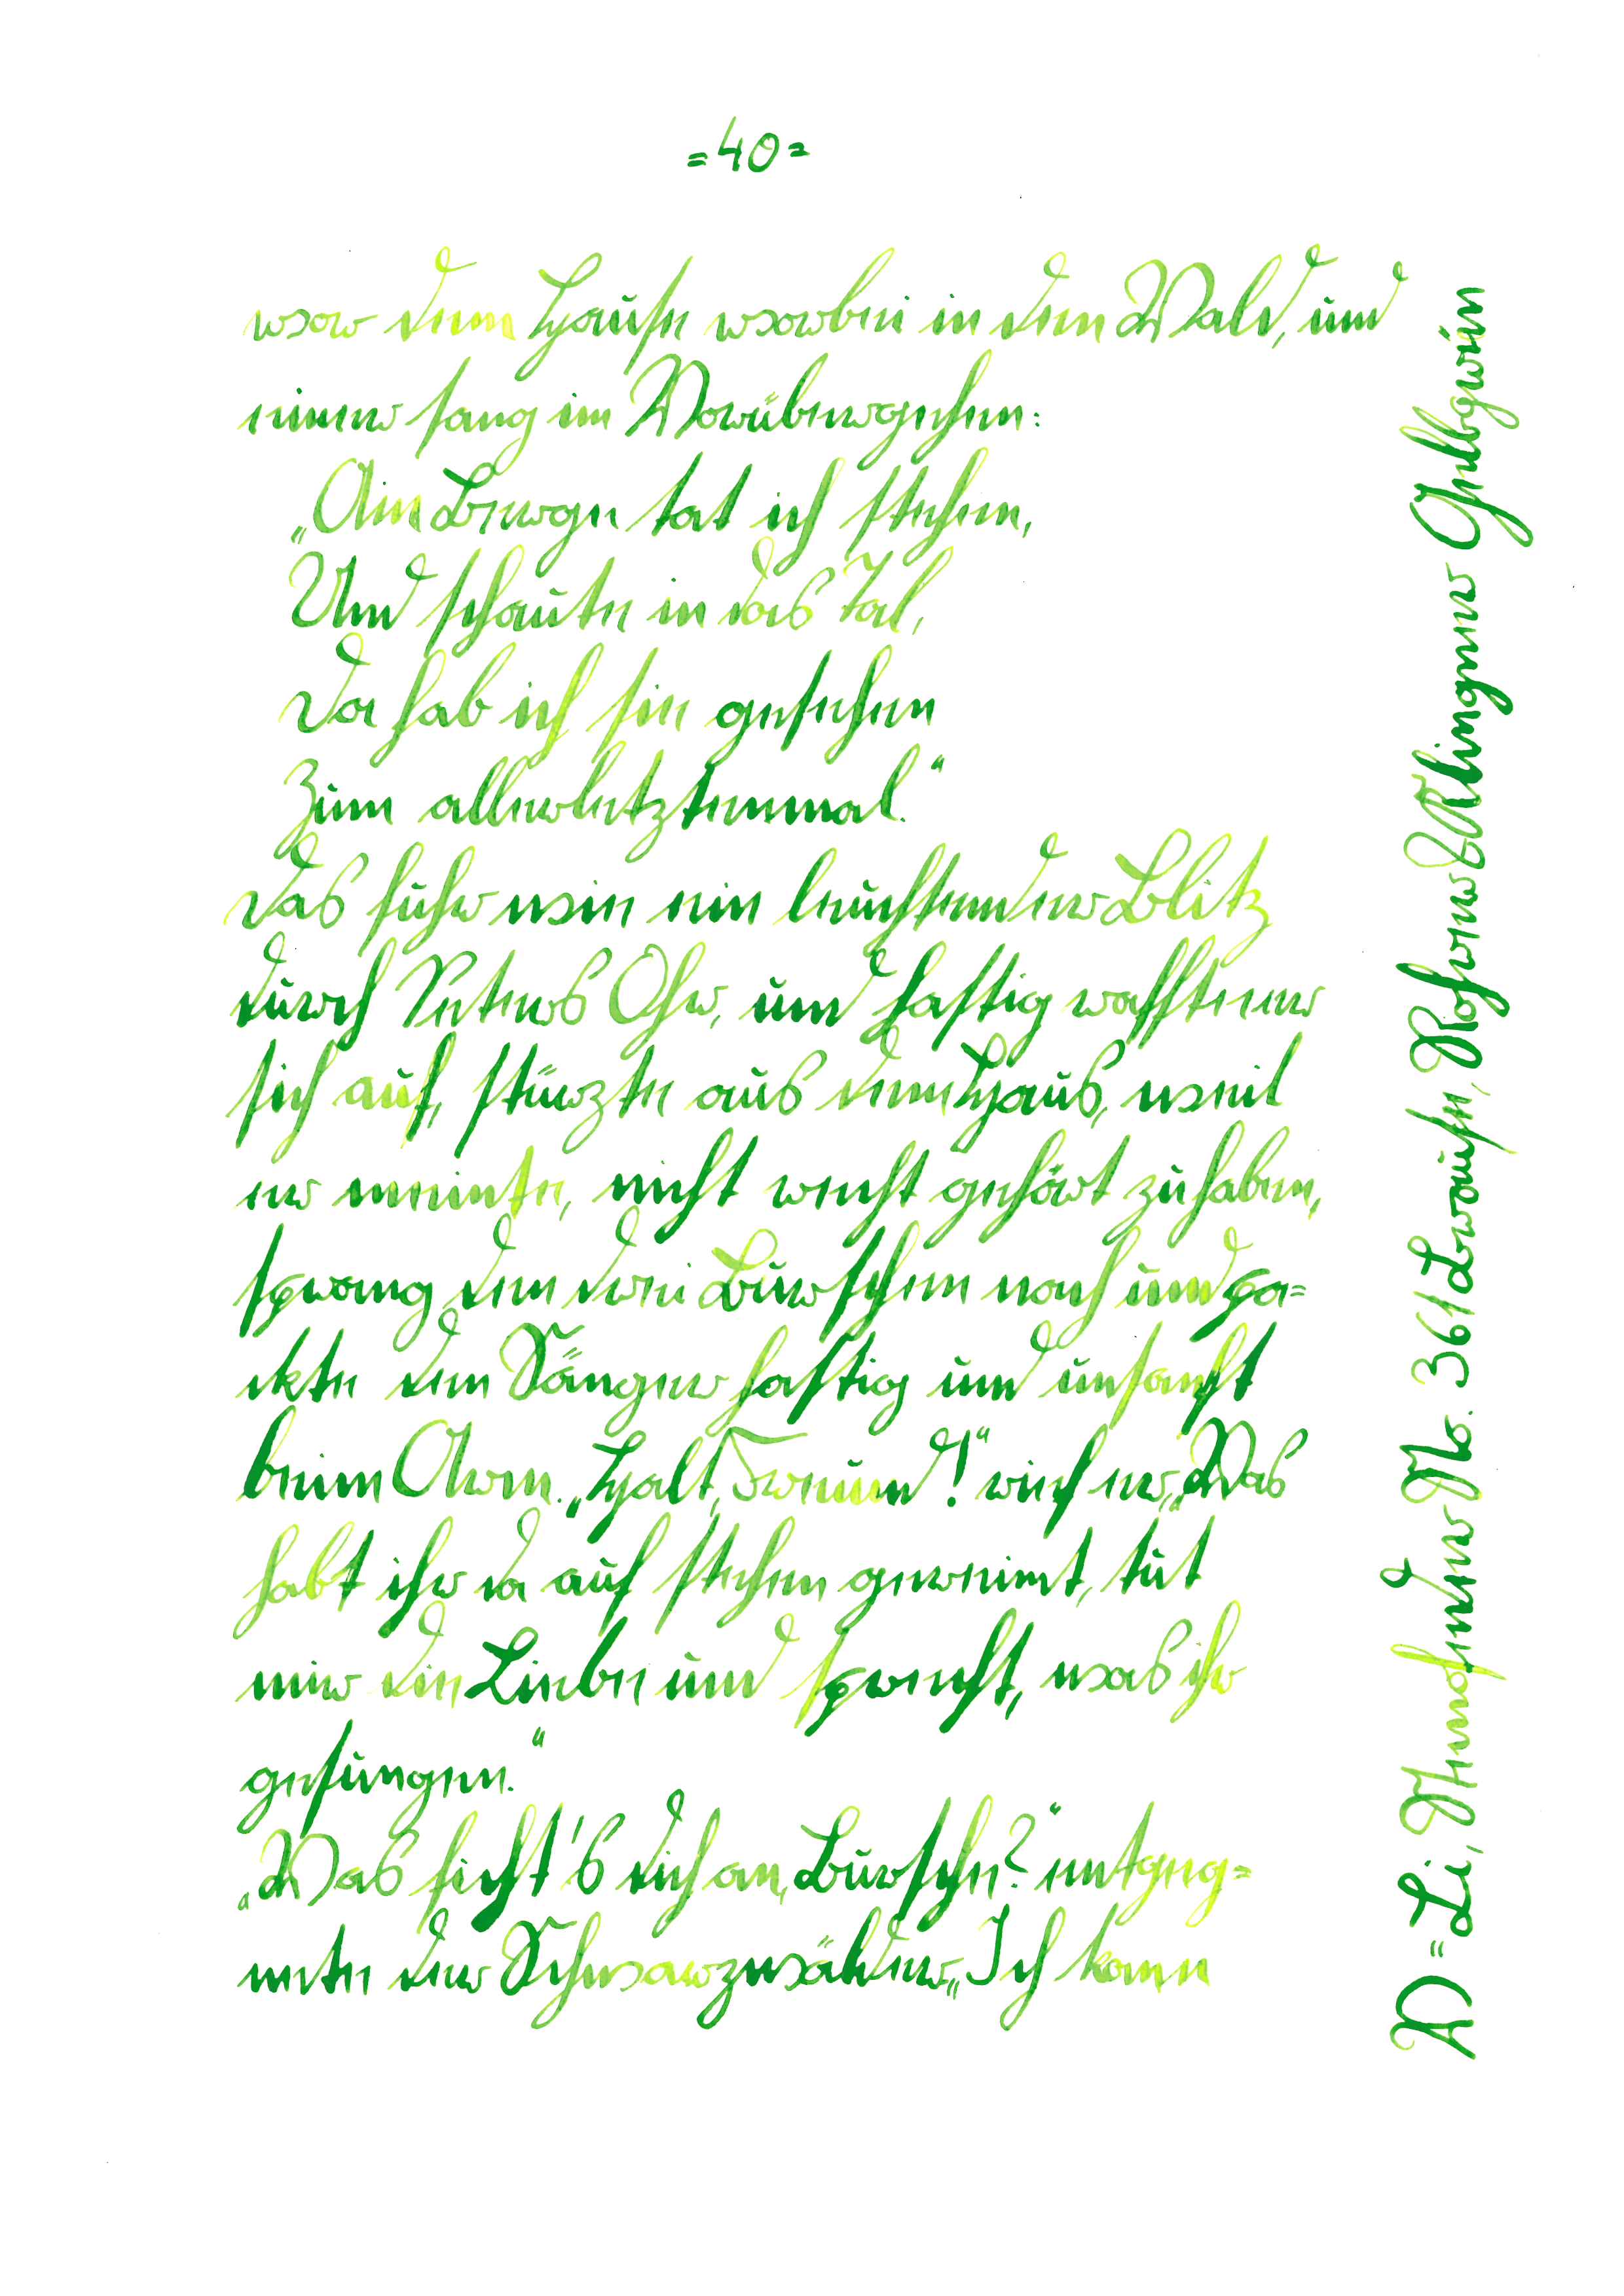 =40=
vor dem Hause vorbei in den Wald, und
einer sang im Vorübergehen:
„Am Berge tat ich stehen,
Und schaute in das Tal,
Da hab ich sie gesehen
Zum allerletztenmal."
Das fuhr wie ein leuchtender Blitz
durch Peters Ohr, und hastig raffte er
sich auf, stürzte aus dem Haus, weil
er meinte, nicht recht gehört zu haben,
sprang den drei Burschen nach und pa=
ckte den Sänger hastig und unsanft
beim Arm. „Halt, Freund!" rief er, „Was
habt ihr da auf stehen gereimt, tut
mir die Liebe und sprecht, was ihr
gesungen."
„Was ficht's dich an, Bursche?" entgeg=
nete der Schwarzwälder. „Ich kann
Li, Brause No. 361 Rohrer & Klingner Gelbgrün